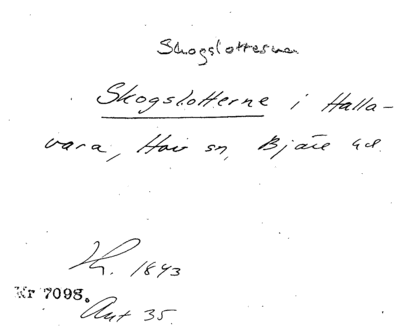 Skogslotterna
Skogslotterne i Halla-
vara, Hov sn, Bjäre hd.
Lh. 1843
Nr 7098.
Akt 35.